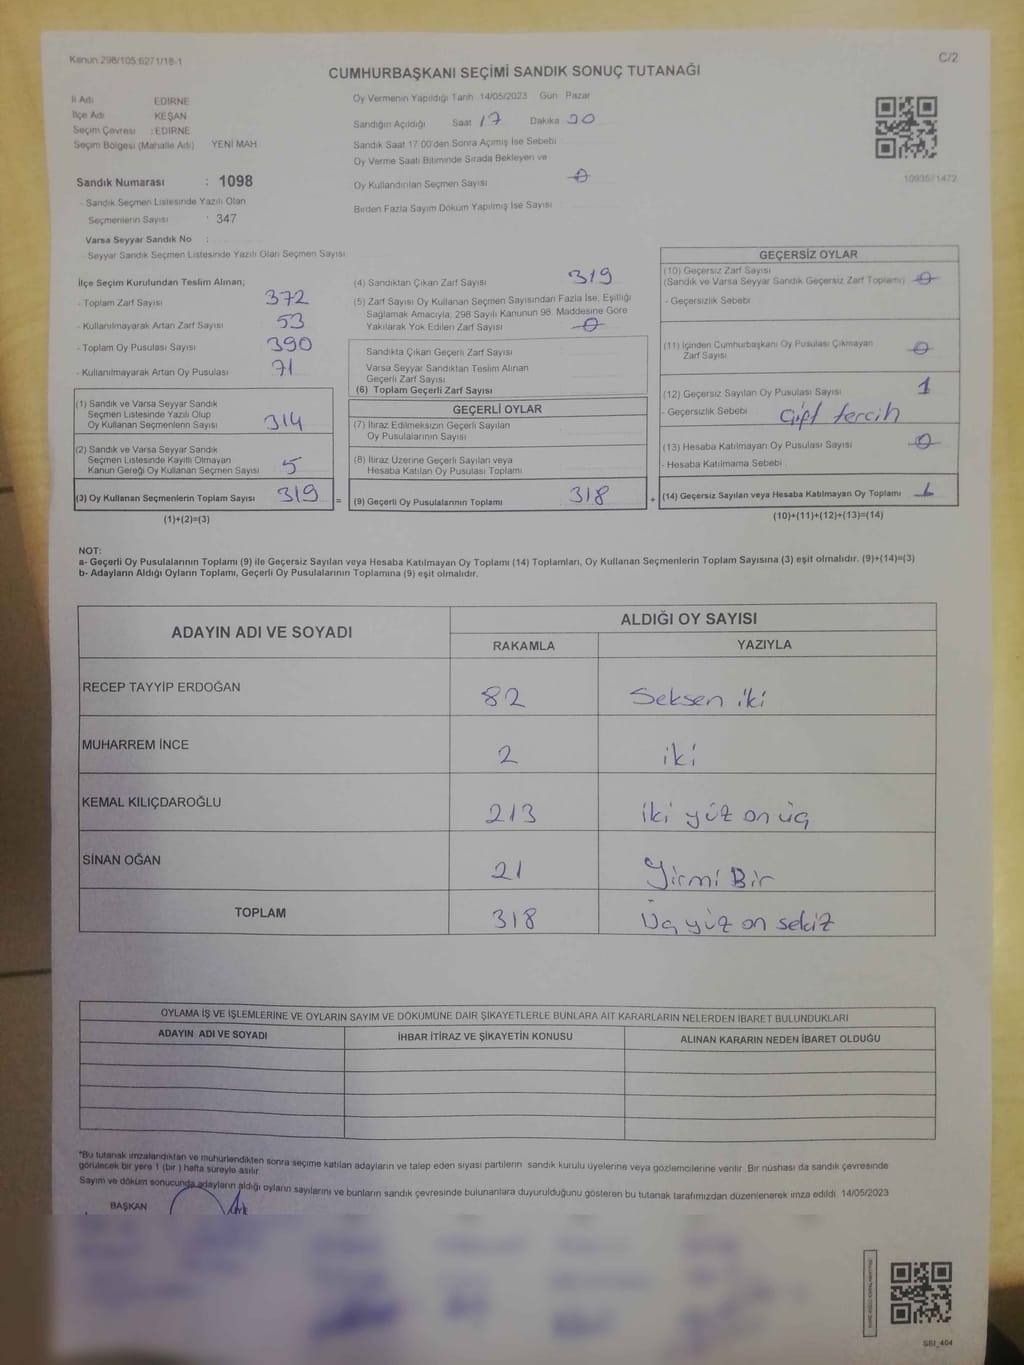 Kanun:298/105;6271/18-1
C/2
CUMHURBAŞKANI SEÇİMİ SANDIK SONUÇ TUTANAĞI
İl Adı EDİRNE
İlçe Adı KEŞAN
Seçim Çevresi :EDİRNE
Seçim Bölgesi (Mahalle Adı) YENİ MAH.
Sandık Numarası : 1098
- Sandık Seçmen Listesinde Yazılı Olan
Seçmenlerin Sayısı : 347
Varsa Seyyar Sandık No :
- Seyyar Sandık Seçmen Listesinde Yazılı Olan Seçmen Sayısı
Oy Vermenin Yapıldığı Tarih :14/05/2023 Gün: Pazar
Sandığın Açıldığı Saat 17 Dakika
Sandık Saat 17:00'den Sonra Açımış İse Sebebi
Oy Verme Saati Bitiminde Sırada Bekleyen ve
Oy Kullandırılan Seçmen Sayısı 0
Birden Fazla Sayım Döküm Yapılmış İse Sayısı
1093571472
İlçe Seçim Kurulundan Teslim Alınan;
- Toplam Zarf Sayısı 372
- Kullanılmayarak Artan Zarf Sayısı 53
- Toplam Oy Pusulası Sayısı 390
- Kullanılmayarak Artan Oy Pusulası 71
(1) Sandık ve Varsa Seyyar Sandık
Seçmen Listesinde Yazılı Olup
Oy Kullanan Seçmenlerin Sayısı 314
(2) Sandık ve Varsa Seyyar Sandık
Seçmen Listesinde Kayıtlı Olmayan
Kanun Gereği Oy Kullanan Seçmen Sayısı 5
(3) Oy Kullanan Seçmenlerin Toplam Sayısı 319
(1)+(2)=(3)
=
(4) Sandıktan Çıkan Zarf Sayısı 319
(5) Zarf Sayısı Oy Kullanan Seçmen Sayısından Fazla İse, Eşitliği
Sağlamak Amacıyla; 298 Sayılı Kanunun 98. Maddesine Göre
Yakılarak Yok Edilen Zarf Sayısı 0
Sandıkta Çıkan Geçerli Zarf Sayısı
Varsa Seyyar Sandıktan Teslim Alınan
Geçerli Zarf Sayısı
(6) Toplam Geçerli Zarf Sayısı
GEÇERLİ OYLAR
(7) İtiraz Edilmeksizin Geçerli Sayılan
Oy Pusulalarının Sayısı
(8) İtiraz Üzerine Geçerli Sayılan veya
Hesaba Katılan Oy Pusulası Toplamı
(9) Geçerli Oy Pusulalarının Toplamı 318
+
GEÇERSİZ OYLAR
(10) Geçersiz Zarf Sayısı
(Sandık ve Varsa Seyyar Sandık Geçersiz Zarf Toplamı) 0
- Geçersizlik Sebebi
(11) İçinden Cumhurbaşkanı Oy Pusulası Çıkmayan
Zarf Sayısı 0
(12) Geçersiz Sayılan Oy Pusulası Sayısı 1
- Geçersizlik Sebebi Çift tercih
(13) Hesaba Katılmayan Oy Pusulası Sayısı 0
- Hesaba Katılmama Sebebi
(14) Geçersiz Sayılan veya Hesaba Katılmayan Oy Toplamı 1
(10)+(11)+(12)+(13)=(14)
NOT:
a- Geçerli Oy Pusulalarının Toplamı (9) ile Geçersiz Sayılan veya Hesaba Katılmayan Oy Toplamı (14) Toplamları, Oy Kullanan Seçmenlerin Toplam Sayısına (3) eşit olmalıdır. (9)+(14)=(3)
b- Adayların Aldığı Oyların Toplamı, Geçerli Oy Pusulalarının Toplamına (9) eşit olmalıdır.
ADAYIN ADI VE SOYADI
ALDIĞI OY SAYISI
RAKAMLA YAZIYLA
RECEP TAYYİP ERDOĞAN 82 Seksen iki
MUHARREM İNCE 2 iki
KEMAL KILIÇDAROĞLU 213 iki yüz on üç
SİNAN OĞAN 21 Yirmi Bir
TOPLAM 318 Üç yüz on sekiz
OYLAMA İŞ VE İŞLEMLERİNE VE OYLARIN SAYIM VE DÖKÜMÜNE DAİR ŞİKAYETLERLE BUNLARA AİT KARARLARIN NELERDEN İBARET BULUNDUKLARI
ADAYIN ADI VE SOYADI İHBAR İTİRAZ VE ŞİKAYETİN KONUSU ALINAN KARARIN NEDEN İBARET OLDUĞU
*Bu tutanak imzalandıktan ve mühürlendikten sonra seçime katılan adayların ve talep eden siyasi partilerin sandık kurulu üyelerine veya gözlemcilerine verilir. Bir nüshası da sandık çevresinde
görülecek bir yere 1 (bir) hafta süreyle asılır.
Sayım ve döküm sonucunda adayların aldığı oyların sayılarını ve bunların sandık çevresinde bulunanlara duyurulduğunu gösteren bu tutanak tarafımızdan düzenlenerek imza edildi. 14/05/2023
BAŞKAN
SBI_404